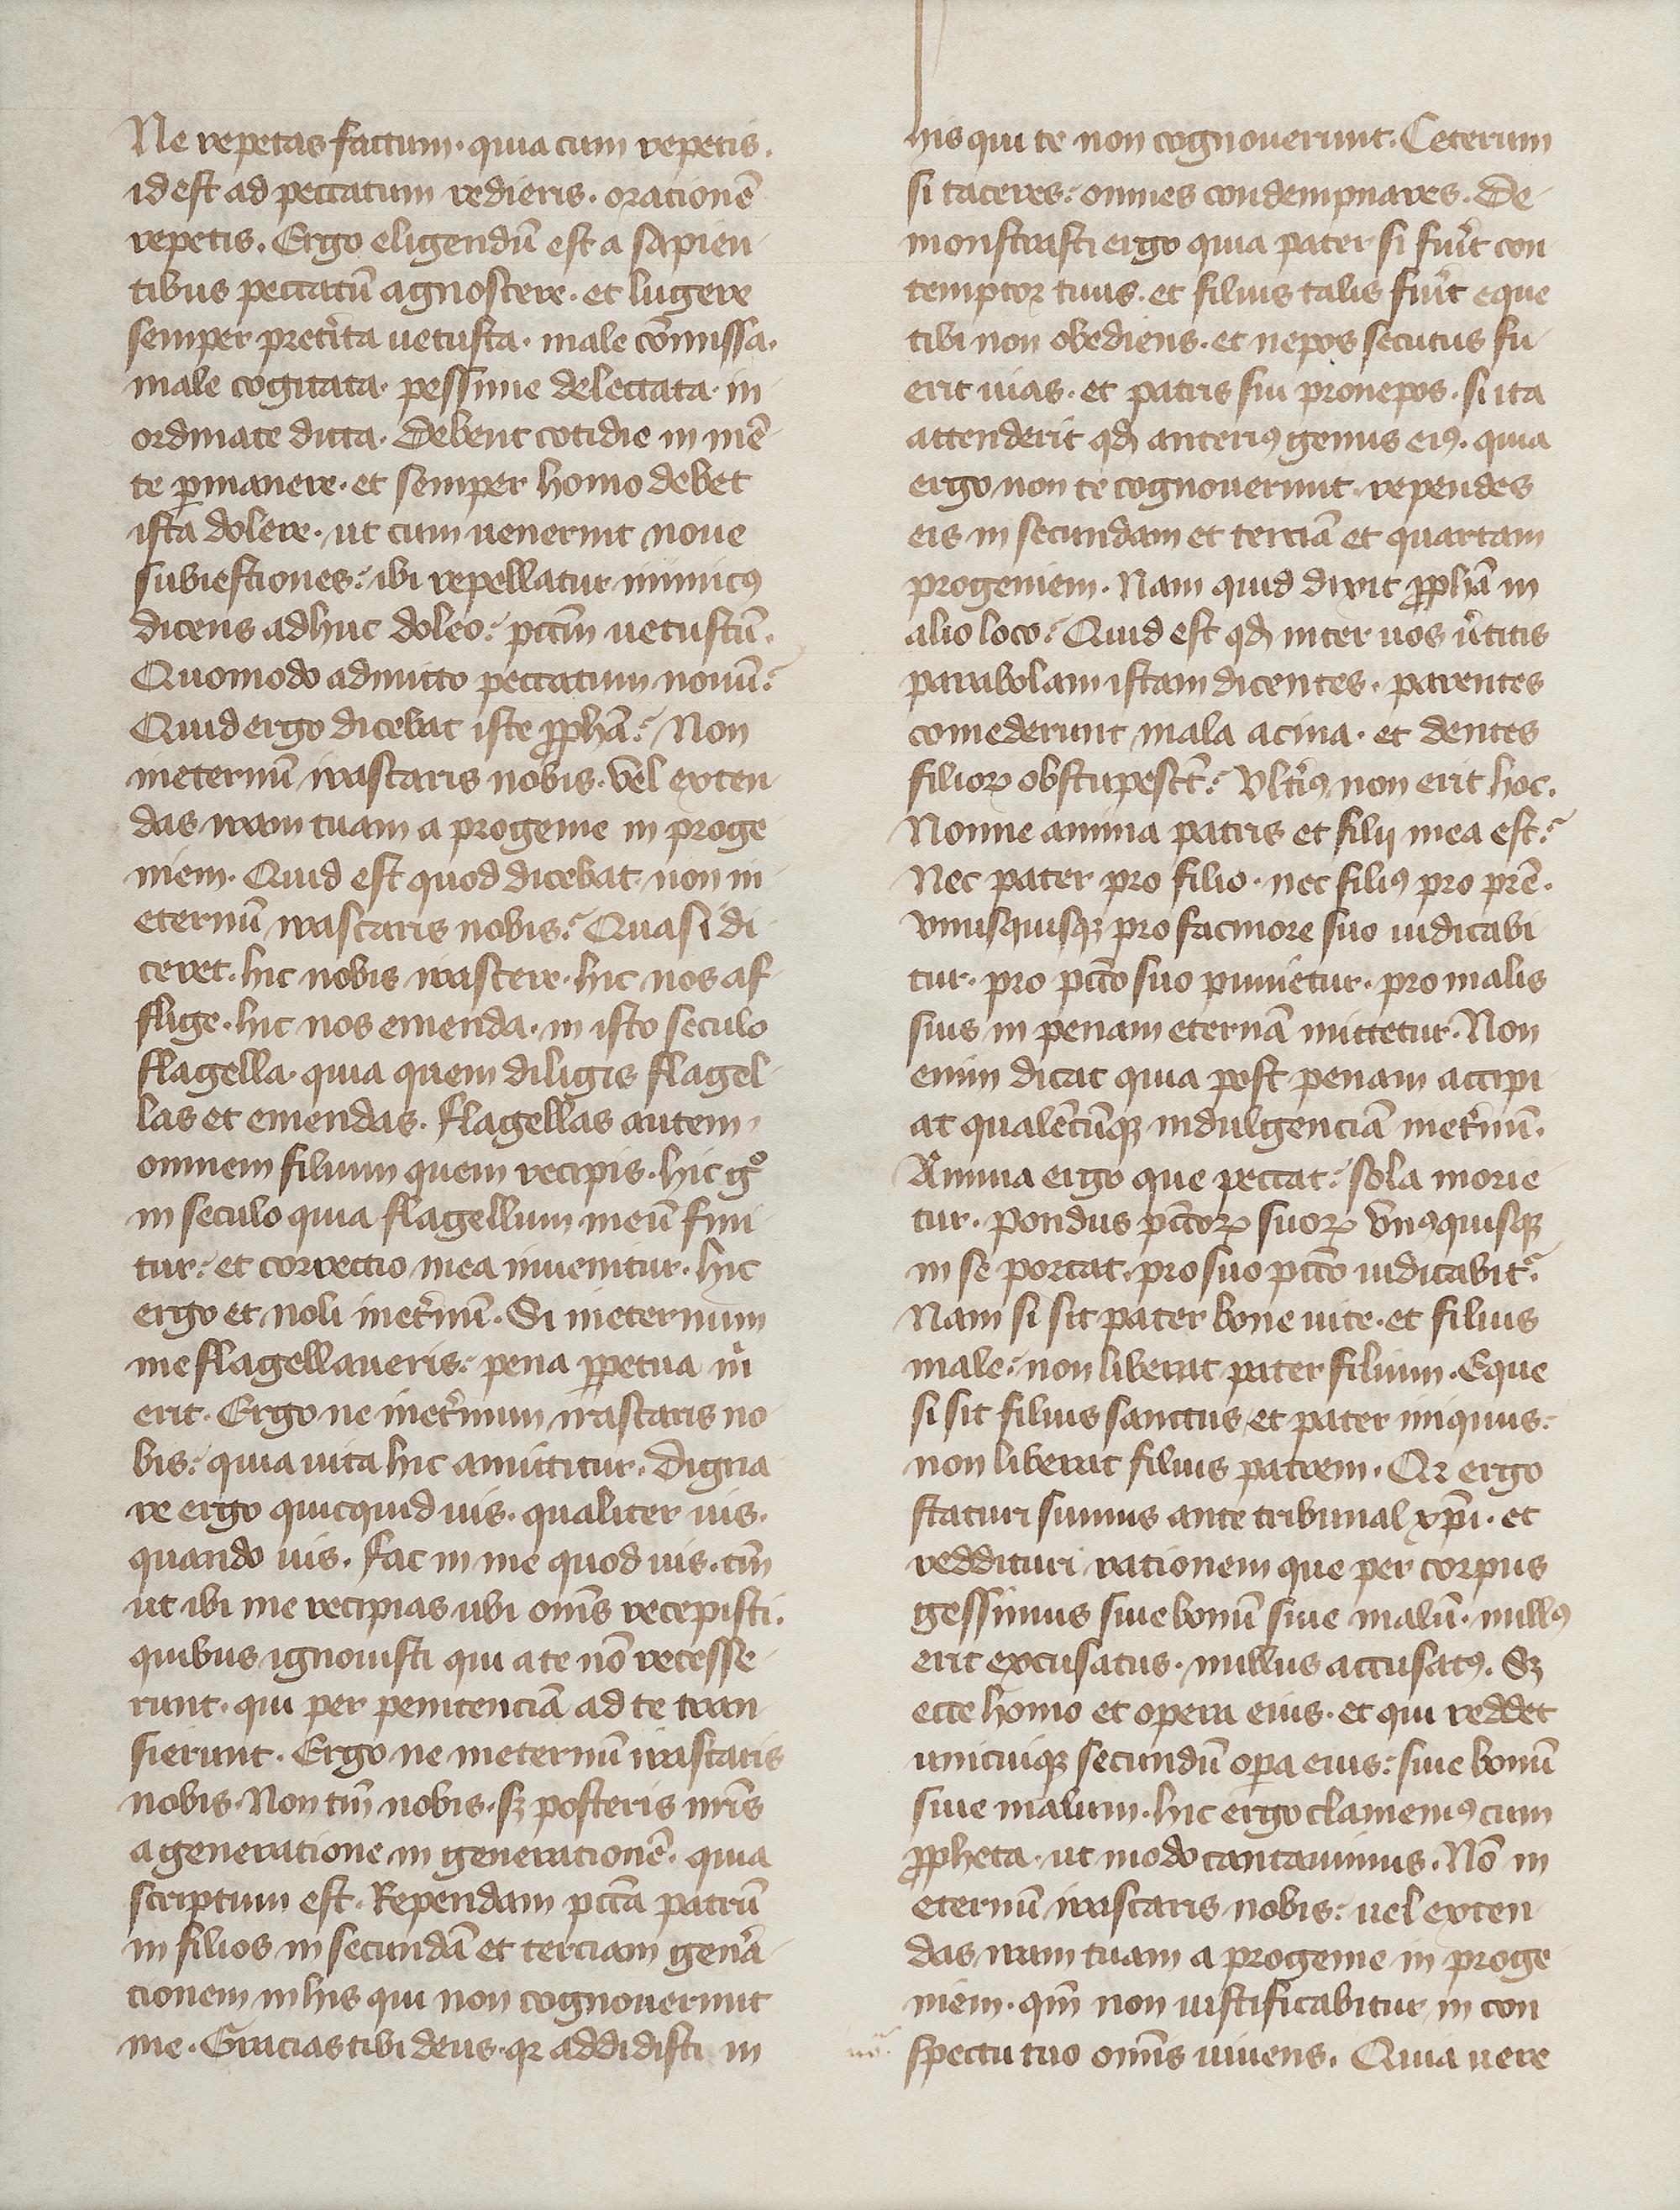 Ne repetas factum · quia cum repetis .
id est ad peccatum redieris · oracionē
repetis . Ergo eligendū est a sapien-
tibus peccatū agnoscere · et lugere
semper pret͛ita uetusta · male cōmissa ·
male cogitata · pessime delectata · in-
ordinate dicta · Debent cotidie in mē-
te ꝑmanere · et semper homo debet
ista dolere · ut cum uenerint noue
subiestiones : ibi repellatur inimicꝰ
dicens adhuc doleo : pcc̄m uetustū .
Quomodo admitto peccatum nouū ?
Quid ergo dicebat iste ꝓph̄a ? Non
ineternū irascaris nobis · Vel exten-
das iram tuam a progenie in proge-
niem · Quid est quod dicebat non in-
eternū irascaris nobis ? Quasi di-
ceret · hic nobis irascere · hic nos af-
flige · hic nos emenda · in isto seculo
flagella · quia quem diligis flagel-
las et emendas . flagellas autem
omnem filium quem recipis · hic gͦ
in seculo quia flagellum meū fini-
tur : et correctio mea inuenitur · hic
ergo et noli inet͛nū . Si ineternum
me flagellaueris : pena ꝑpetua m̄
erit . Ergo ne inet͛num irascaris no-
bis : quia uita hic amittitur . Digna-
re ergo quicquid uis . qualiter uis .
quando uis . fac in me quod uis . tm̄
ut ibi me recipias ubi om̄s recepisti .
quibus ignouisti qui a te nō recesse-
runt · qui per penitenciā ad te tran-
sierunt . Ergo ne ineternū irascaris
nobis · Non tm̄ nobis · sꝫ posteris nr̄is
a generatione in generacionē . quia
scriptum est . Rependam pcc̄a patrū
in filios in secundā et terciam gen͛a-
cionem in his qui non cognouerunt
me . Gracias tibi deus · qꝛ addidisti in
his qui te non cognouerunt . Ceterum
si taceres : omnes condempnares . De-
monstrasti ergo quia pater si fu͛it con-
temptor tuus . et filius talis fu͛it eque
tibi non obediens . et nepos secutus fu-
erit uias . et patris sui pronepos . si ita
attenderit qd̄ anteriꝰ genus eiꝰ . quia
ergo non te cognouerunt . rependes
eis in secundam et terciā et quartam
progeniem . Nam quid dixit ꝓph̄a in
alio loco ? Quid est qd̄ inter uos u͛titis
parabolam istam dicentes . parentes
comederunt mala acina · et dentes
filioꝝ obstupesct̄ ? Vlt͛iꝰ non erit hoc .
Nonne anima patris et filij mea est ?
Nec pater pro filio · nec filiꝰ pro pr̄e .
vnusquisqꝫ pro facinore suo iudicabi-
tur · pro pcc̄o suo punietur · pro malis
suis in penam eternā mittetur . Non
enim dicat quia post penam accipi-
at qualēcūqꝫ indulgenciā inet͛nū .
Anima ergo que peccat : sola morie-
tur . pondus pcc̄oꝝ suoꝝ vnꝰquisqꝫ
in se portat . pro suo pcc̄o iudicabit͛ .
Nam si sit pater bone uite · et filius
male : non liberat pater filium . Eque
si sit filius sanctus et pater iniquus :
non liberat filius patrem . Qꝛ ergo
staturi sumus ante tribunal xp̄i · et
reddituri rationem que per corpus
gessimus siue bonū siue malū · nullꝰ
erit excusatus · nullus accusatꝰ . Sꝫ
ecce homo et opera eius · et qui reddet
unicuiqꝫ secundū oꝑa eius : siue bonū
siue malum · hic ergo clamemꝰ cum
ꝓpheta · ut modo cantauimus . Nō in
eternū irascaris nobis : uel exten-
das iram tuam a progenie in proge-
niem · qm̄ non iustificabitur in con-
spectu tuo om̄is uiuens . Quia uere